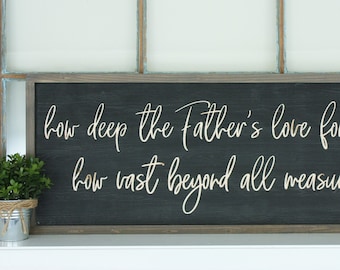 how deep the Father's love fo
how vast beyond all measu